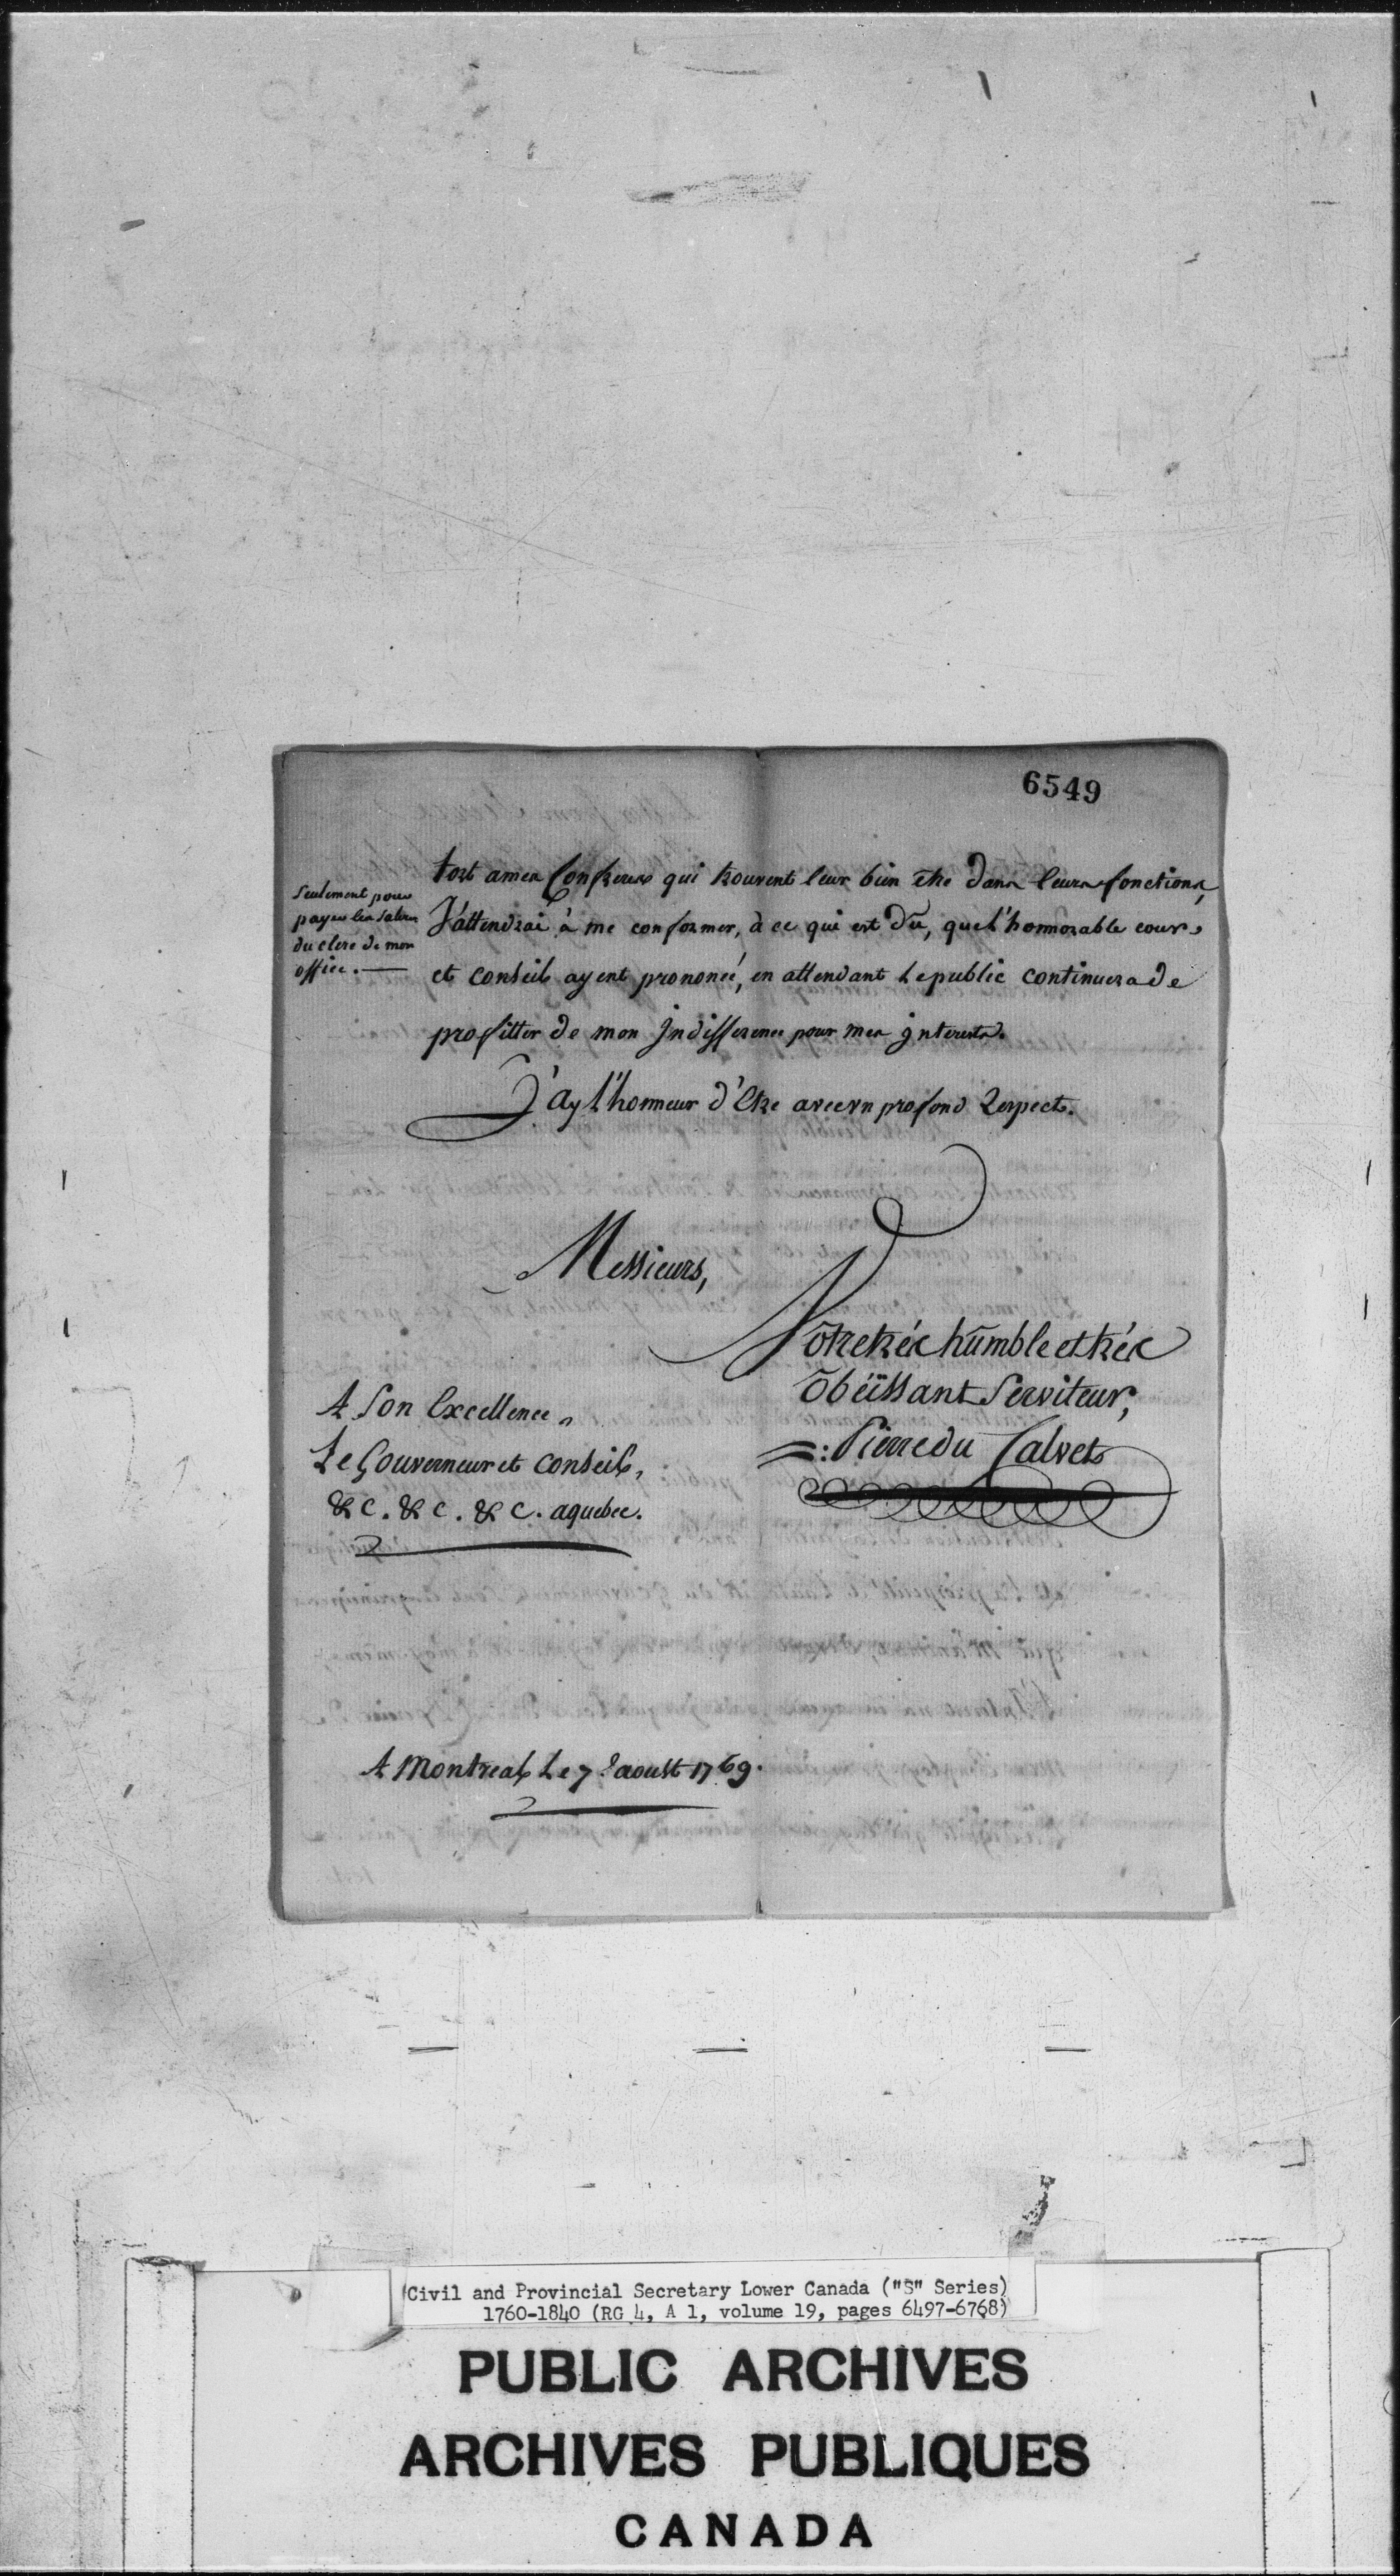 6549
tort ames Confreres qui trouvent leur bien être dans leurs fonctions,
J'attendrai à me conformer, à ce qui est dû, quel'honnorable cour,
et conseil ayent prononcé, en attendant Le public continuera de
profitter de mon Indifference pour mes jnterests.
Seulement pour
payer les salaires
du clerc de mon
office. —
J'ay l'honneur d'Etre avec vn profond Respect.
Messieurs,
Vôtre trés humble et trés
obéissant Serviteur,
=: Pierre du Calvet
A Son Excellence,
Le Gouverneur et conseil,
&c. &c. &c. aquebec.
A Montreal Le 7.e aoust 1769.
Civil and Provincial Secretary Lower Canada ("S" Series)
1760-1840 (RG 4, A 1, volume 19, pages 6497-6768)
PUBLIC ARCHIVES
ARCHIVES PUBLIQUES
CANADA